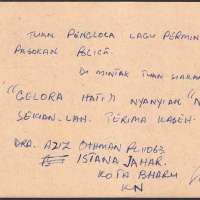 TUAN PENGLOLA LAGU PERMIN
PASOKAN POLICE.
DI MINTAK TUAN SIARAN
"GELORA HATI" NYANYIAN "N
SEKIAN-LAH. TERIMA KASEH.
DRA. AZIZ OTHMAN PC.11063
ISTANA JAHAR.
KOTA BHARU
KN